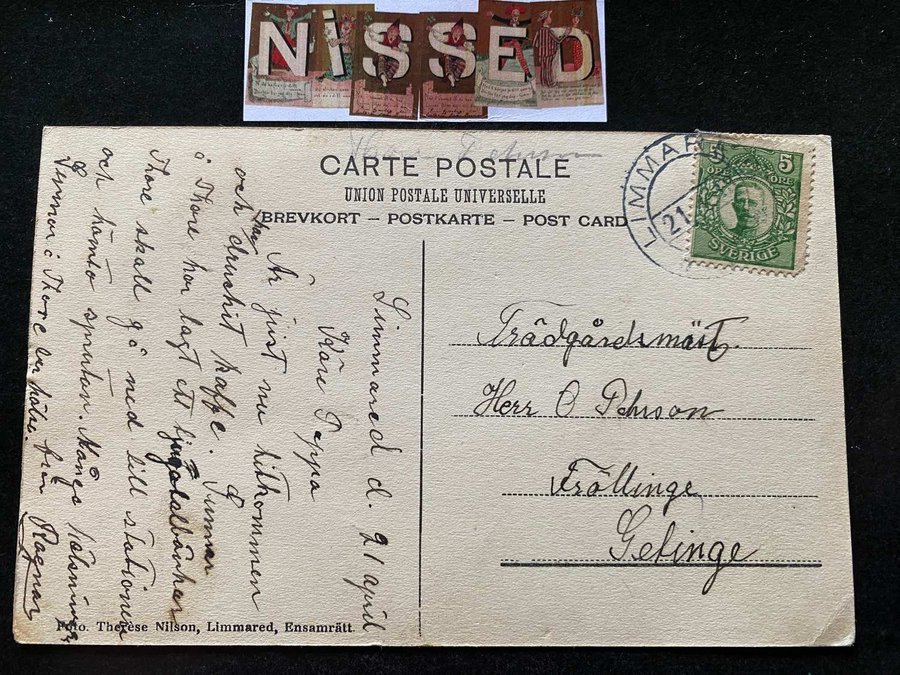 NISSED
CARTE POSTALE
UNION POSTALE UNIVERSELLE
BREVKORT – POSTKARTE – POST CARD
LIMMARED
21
5
5
ÖRE
SVERIGE
Limmared d. 21 april
Käre Pappa
Är just nu hitkommen
och har druckit kaffe. Gunnar
o Thore har lagt ett
Thore skall gå ned till stationen
och hämta sprutan. Många hälsningar
Gunnar o Thore ber hälsa. från Ragnar
Foto. Therèse Nilson, Limmared, Ensamrätt.
Trädgårdsmäst.
Herr O Pehrson
Fröllinge
Getinge